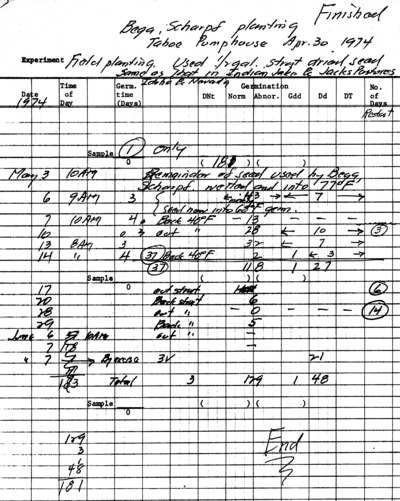 Finished
Bega, Scharpf planting
Tahoe Pumphouse Apr. 30 1974
Experiment Field planting. Used 1/2 gal. strat dried seed
Same as that in Indian Jake & Jacks Pastures
Idaho & Nevada
Date Time of Day Germ. time (Days) Germination DNt Norm Abnor. Gdd Dd DT No. of Days
1974 Restart
Sample 1 only
0 ( 181 ) ( )
May 3 10AM Remainder of seed used by Bega
Scharpf wetted and into 77°F
6 9AM 3 43 ← 7 →
Seed now into 60°F germ.
7 10AM 4 Back 40°F - 13 -
10 0 3 out " 28 ← 10 → 3
13 8AM 3 32 ← 7 →
14 " 4 37 Back 40°F 2 1 ← 3 →
37 118 1 27
Sample 0 ( ) ( )
17 out strat 6
20 Back strat 6
28 out " - 0 - 14
29 Back " 5
June 6 10AM out " -
7 -
" 7 → By excise 3V 21
183 Total 3 129 1 48
Sample 0 ( ) ( )
129
3
1
48
181
End